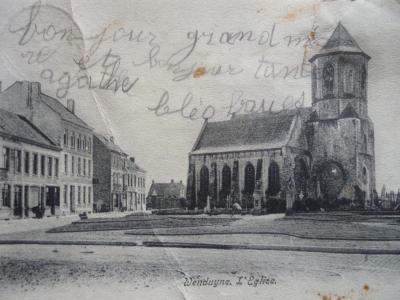 bonjour grand mè
re et bonjour tant
agathe
Wenduyne. L'Eglise.